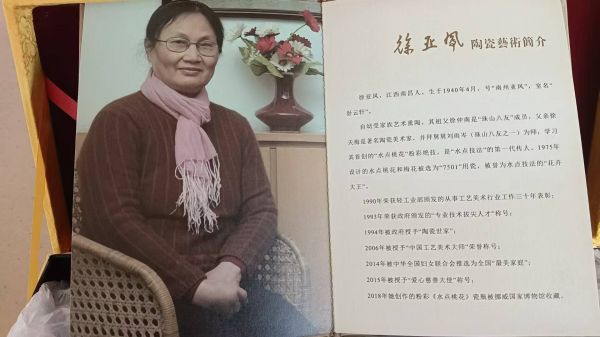 徐亚凤 陶瓷藝術簡介
徐亚凤，江西南昌人，生于1940年4月，号“南州亚凤”，室名
“舒云轩”。
自幼受家族艺术熏陶，其祖父徐仲南是“珠山八友”成员，父亲徐
天梅是著名陶瓷美术家，并拜舅舅刘雨岑（珠山八友之一）为师，学习
其首创的“水点桃花”粉彩绝技，是“水点技法”的第一代传人。1975年
设计的水点桃花和梅花被选为“7501”用瓷，被誉为水点技法的“花卉
大王”。
1990年荣获轻工业部颁发的从事工艺美术行业工作三十年表彰；
1993年荣获政府颁发的“专业技术拔尖人才”称号；
1994年被政府授予“陶瓷世家”；
2006年被授予“中国工艺美术大师”荣誉称号；
2014年被中华全国妇女联合会推选为全国“最美家庭”；
2015年被授予“爱心慈善大使”称号；
2018年她创作的粉彩《水点桃花》瓷瓶被挪威国家博物馆收藏。